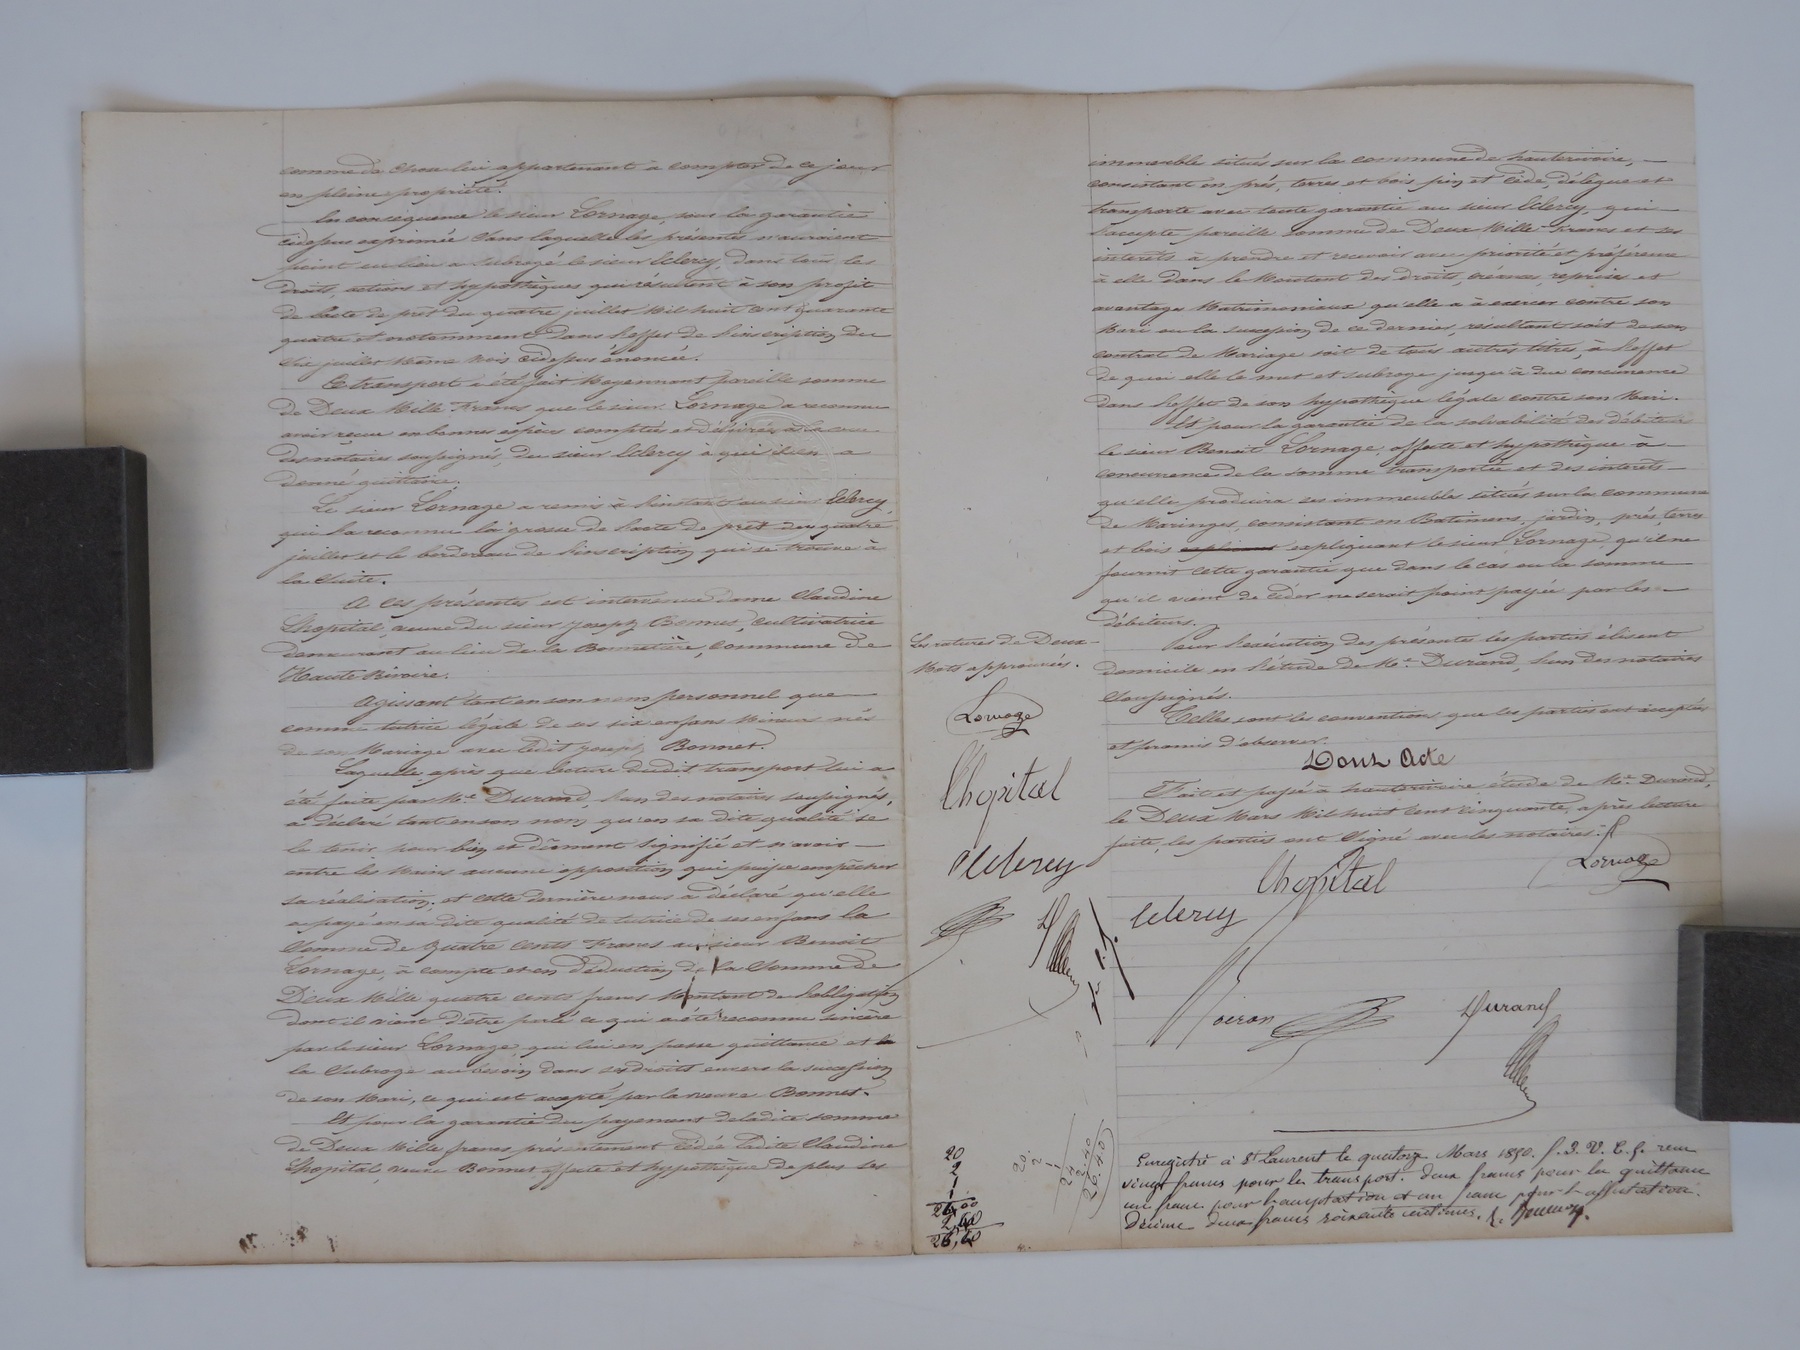 comme de chose lui appartenant à compter de ce jour
en pleine propriété.
En conséquence le sieur Lornage, sous la garantie
cidessus exprimée sans laquelle les présentes n'auraient
point eu lieu a subrogé le sieur Clercy, dans tous les
droits, actions et hypothèques qui résultent à son profit
de l'acte de prêt du quatre juillet Mil huit cent quarante
quatre et notamment dans l'effet de l'inscription du
dix juillet même mois cidessus énoncée.
Ce transport a été fait Moyennant pareille somme
de Deux Mille Francs que le sieur Lornage a reconnu
avoir reçue en bonnes espèces comptées et délivrées à la vue
des notaires soussignés, du sieur Clercy à qui il en a
donné quittance.
Le sieur Lornage a remis à l'instant au sieur Clercy,
qui l'a reconnu la grosse de l'acte de prêt du quatre
juillet et le bordereau de l'inscription qui se trouve à
la suite.
A ces présentes est intervenue dame Claudine
Lhopital, veuve du sieur Joseph Bonnet, cultivatrice
demeurant au lieu de la Bonnetière, commune de
Haute Rivoire.
Agissant tant en son nom personnel que
comme tutrice légale de ses six enfans Mineurs nés
de son Mariage avec ledit Joseph Bonnet.
Laquelle, après que lecture dudit transport lui a
été faite par Me Durand, l'un des notaires soussignés,
a déclaré tant en son nom qu'en sa dite qualité se
le tenir pour bien et dûment signifié et n'avoir
entre les Mains aucune opposition qui puisse empêcher
sa réalisation; et cette dernière nous a déclaré qu'elle
a payé en sa dite qualité de tutrice de ses enfans la
Somme de Quatre Cents Francs au sieur Benoit
Lornage, à compte et en déduction de la Somme de
Deux Mille quatre cents francs Montant de l'obligation
dont il vient d'être parlé ce qui a été reconnu sincère
par le sieur Lornage, qui lui en passe quittance et la
la Subroge au besoin dans ses droits envers la succession
de son Mari, ce qui est accepté par la veuve Bonnet.
Et pour la garantie du payement de ladite somme
de Deux Mille francs présentement cédée ladite Claudine
Lhopital, veuve Bonnet affecte et hypothèque de plus ses
immeuble situés sur la commune de hauterivoire,
consistant en prés, terres et bois pin et cède, délègue et
transporte avec toute garantie au sieur Clercy, qui
l'accepte pareille somme de Deux Mille Francs et ses
intérêts à prendre et recevoir avec priorité et préférence
à elle dans le Montant des droits, créances, reprises et
avantages Matrimoniaux qu'elle a à exercer contre son
Mari ou la succession de ce dernier, résultant soit de son
contrat de Mariage soit de tous autres titres, à l'effet
de quoi elle le met et subroge jusqu'à due concurrence
dans l'effet de son hypothèque légale contre son Mari.
Et pour la garantie de la solvabilité des débiteurs
le sieur Benoit Lornage, affecte et hypothèque à
concurrence de la somme transportée et des intérêts
qu'elle produira ses immeubles situés sur la commune
de Maringes, consistant en Batimens, jardin, prés, terres
et bois expliquant le sieur Lornage, qu'il ne
fournit cette garantie que dans le cas ou la somme
qu'il vient de céder ne serait point payée par les
débiteurs.
Pour l'exécution des présentes les parties élisent
domicile en l'étude de Me Durand, l'un des notaires
soussignés.
Telles sont les conventions que les parties ont acceptées
et promis d'observer.
Dont Acte
Fait et passé à hauterivoire étude de Me Durand,
le Deux Mars Mil huit Cent cinquante, après lecture
faite, les parties ont Signé avec les notaires.
Lornage
Lhopital
Clercy
Voiron
Durand
Les ratures de Deux
Mots approuvées.
Lornage
Lhopital
Clercy
20
2
1
1
24,00
2,40
26,40
20.
2
1
1
24
2.40
26.40
Enregistré à St Laurent le quatorze Mars 1850. f. reçu
vingt francs pour le transport. deux francs pour la quittance
un franc pour l'acceptation et un franc pour l'affectation.
Décime deux francs soixante centimes.